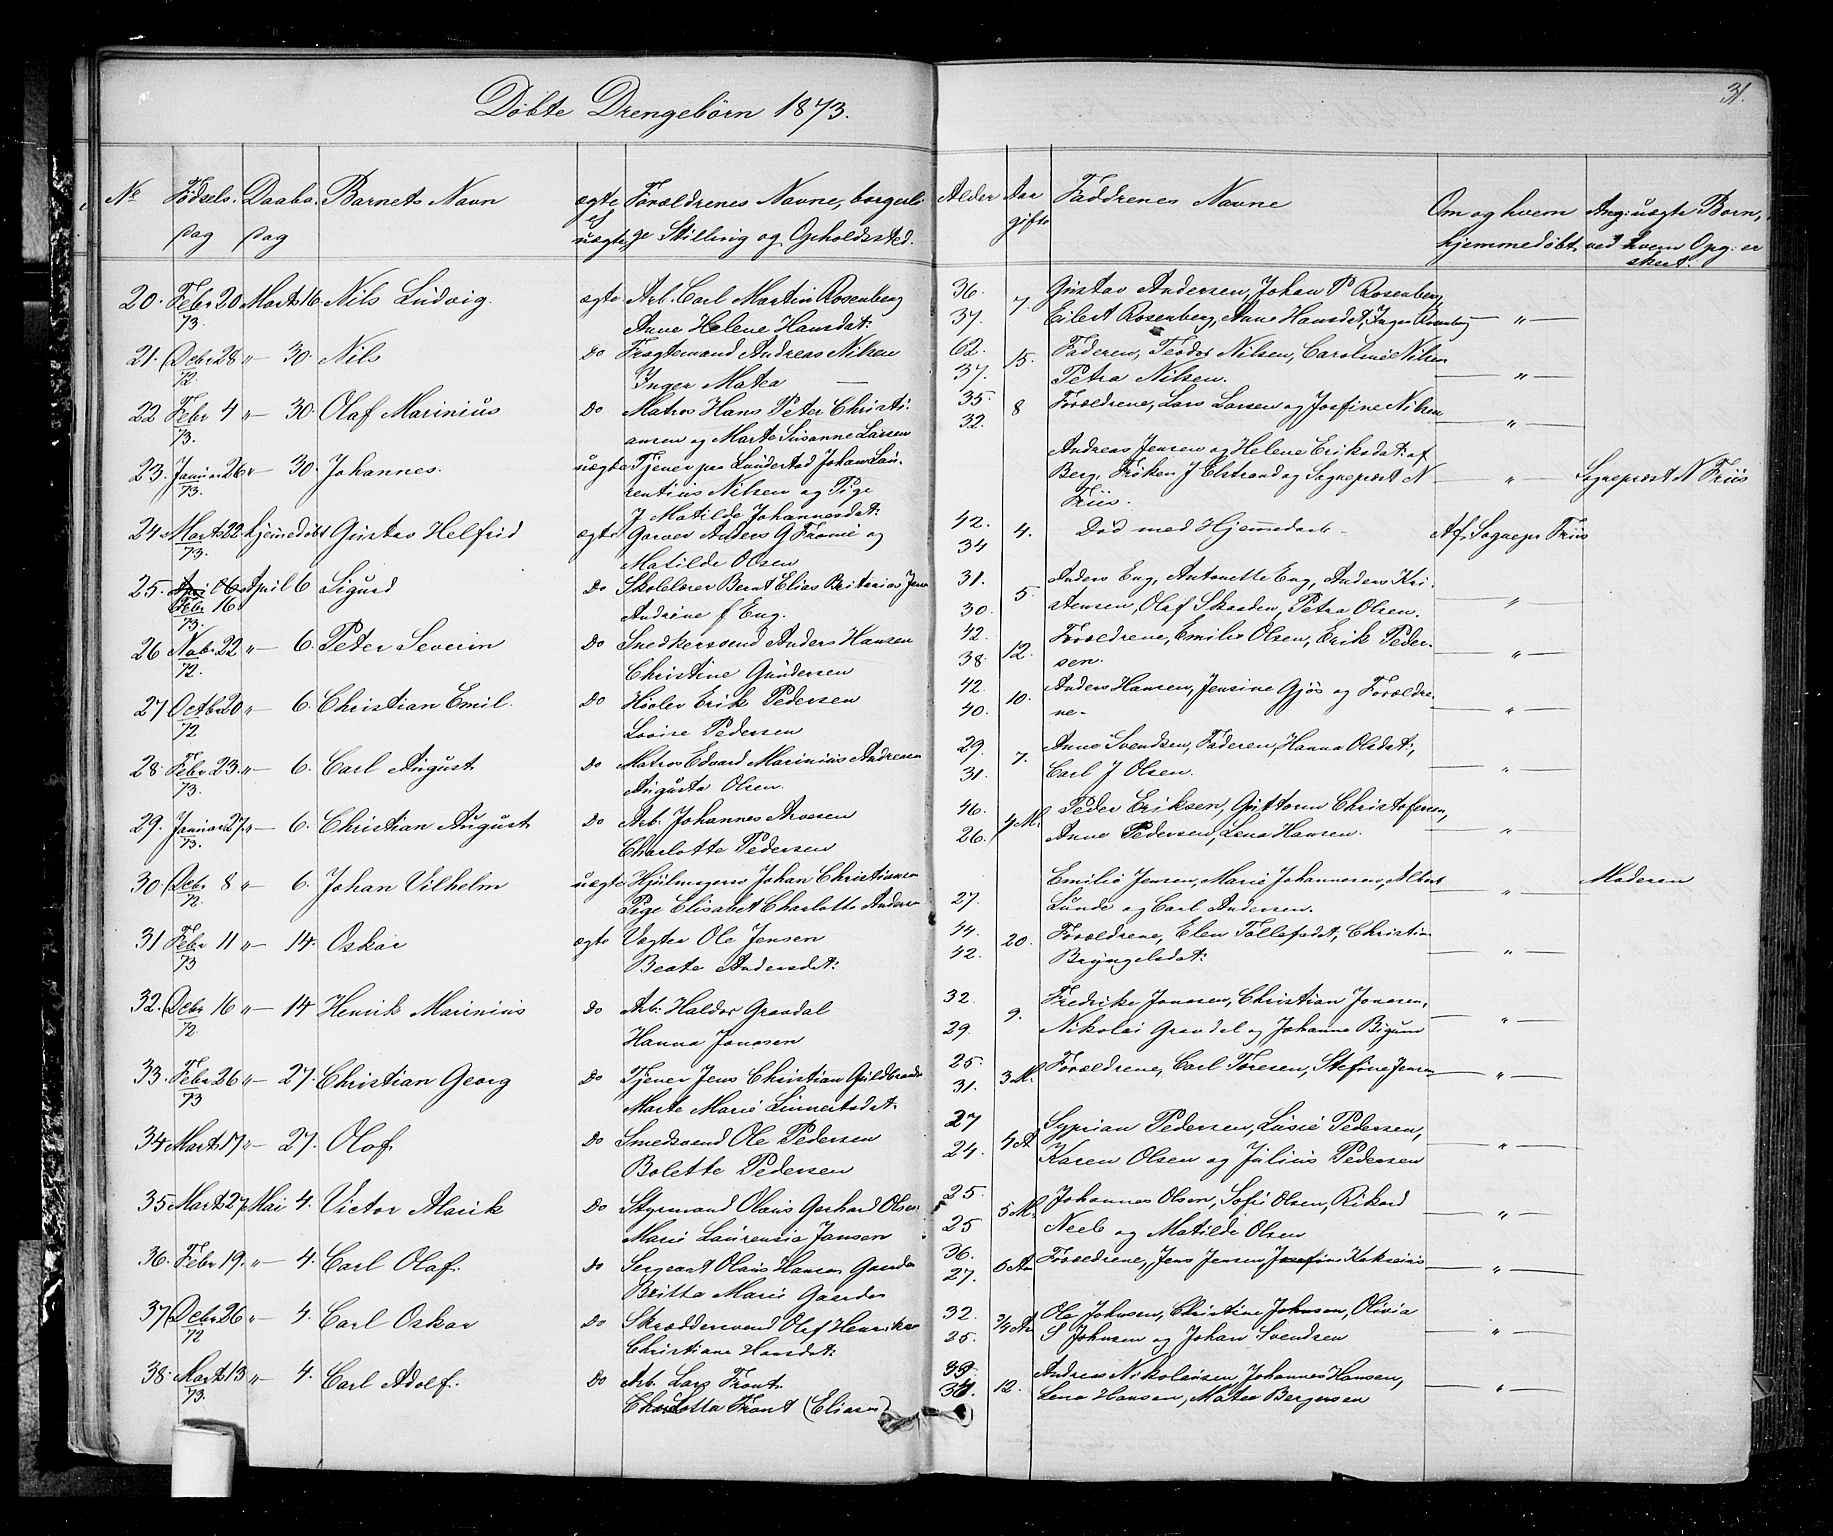 Döbte Drengebörn 1873.
31.
No Födsels Dag Daabs Dag Barnets Navn ægte el uægte Forældrenes Navne, borgerlige Stilling og Opholdssted. Alder Aar gifte Faddrenes Navne Om og hvem hjemmedöbt Ang: uægte Börn, ved hvem Opg: er skeet.
20. Febr 20 Marts 16. Nils Ludvig. ægte Arb. Carl Martin Rosenberg 36. 7 Gustav Andersen, Johan P Rosenberg,
73. Anne Helene Hansdat: 37. Eilert Rosenberg, Anne Hansdat, Inger Rosenberg — " —
21. Debr 28 " — 30. Nils Do Fragtemand Andreas Nilsen 62. 15. Faderen, Teodor Nilsen, Caroline Nilsen
72. Inger Matea — 37. Petra Nilsen. — " —
22 Febr 4 " — 30. Olaf Marinius Do Matros Hans Peter Christi- 35. 8 Forældrene, Lars Larsen og Josfine Nilsen
73. ansen og Marte Susanne Larsen 32. — " —
23. Januar 26 " 30. Johannes. uægte Tjener paa Lundestad Johan Lau- Andreas Jensen og Helene Eriksdat: af
73. rentius Nilsen og Pige Berg, Fröken J Elstrand og Sognepræst N — " — Sognepræst N Friis
J Matilde Johannesdat: Friis.
24 Marts 22 hjemedöbt Gustav Helfrid ægte Garver Anders G Fromé og 42. 4. Död med Hjemmedaab — Af Sognepr Friis
73. Matilde Olsen 34
25. April 6 Sigurd Do Skolelærer Bernt Elias 31. 5. Anders Eng, Antonette Eng, Anders Kri-
Febr 16 73. Andrine f Eng. 30. stensen, Olaf Skaaden, Petra Olsen. — " —
26 Nobr 22 " — 6. Peter Severin Do Snedkersvend Anders Hansen 42. 12. Forældrene, Emilie Olsen, Erik Peder-
72. Christine Gundersen 38. sen. — " —
27 Octbr 20 " — 6. Christian Emil. Do Hövler Erik Pedersen 42. 10. Anders Hansen, Jensine Gjös og Forældre-
72 Lovise Pedersen 40. ne. — " —
28 Febr 23. " — 6. Carl August Do Matros Edvard Marinius Andresen 29. 7. Anne Svendsen, Faderen, Hanna Olsdat:,
73. Augusta Olsen. 31. Carl J Olsen. — " —
29. Januar 27. " — 6. Christian August Do Arb. Johannes Arvesen 46. 4 M. Peder Eriksen, Guttorm Christofersen,
73. Charlotte Pedersen 26. Anne Pedersen, Lena Hansen. — " —
30. Debr 8 " — 6. Johan Vilhelm uægte Hjulmager Johan Christiansen Emilie Jensen, Marie Johannesen, Albert — " — Moderen
72. Pige Elisabet Charlotte Anders 27. Lunde og Carl Andersen.
31 Febr 11 " — 14. Oskar ægte Vagter Ole Jensen 44. 20. Forældrene, Elen Tollefsdat, Christian
73 Beate Andersdat: 42. Bryngelsdat: — " —
32. Debr 16 " — 14 Henrik Marinius Do Arb: Haldor Gravdal 32. 9. Fredrike Jonasen, Christian Jonasen,
72 Hanna Jonasen 29. Nikolai Gravdal og Johanne Bigum — " —
33. Febr 26 " — 27. Christian Georg Do Tjener Jens Christian Guldbrands 25. 3 M. Forældrene, Carl Toresen, Stefine Jensen — " —
73 Marte Marie Linnertsdat. 31.
34 Marts 17 " — 27. Olof Do Smedsvend Ole Pedersen 27 4 A Syprian Pedersen, Lusie Pedersen,
Bolette Pedersen 24. Karen Olsen og Julius Pedersen — " —
35 Marts 27 Mai 4. Victor Alarik Do Styrmand Olaus Gerhard Olsen 25. 5 M. Johannes Olsen, Sofie Olsen, Rikard
Marie Laurensia Jansen 25 Neeb og Matilde Olsen — " —
36. Febr 19. " — 4. Carl Olaf. Do Sergeant Olaus Hansen Gaarder 36. 6 Aar Forældrene, Jens Jensen, Josefine
Britta Marie Gaarder 27. — " —
37 Debr 26 " — 4. Carl Oskar Do Skræddersvend Olef Henriks 32. 3/4 Aar Ole Johnsen, Christine Johnsen, Olivia
72 Christiane Hansdat: 25. S Johnsen og Johan Svendsen — " —
38. Marts 13 " — 4. Carl Adolf. Do Arb. Lars Front. 35 12. Andreas Nikolaisen Johannes Hansen,
73. Charlotte Front (Eliasen) Lena Hansen, Matea Bergersen — " —